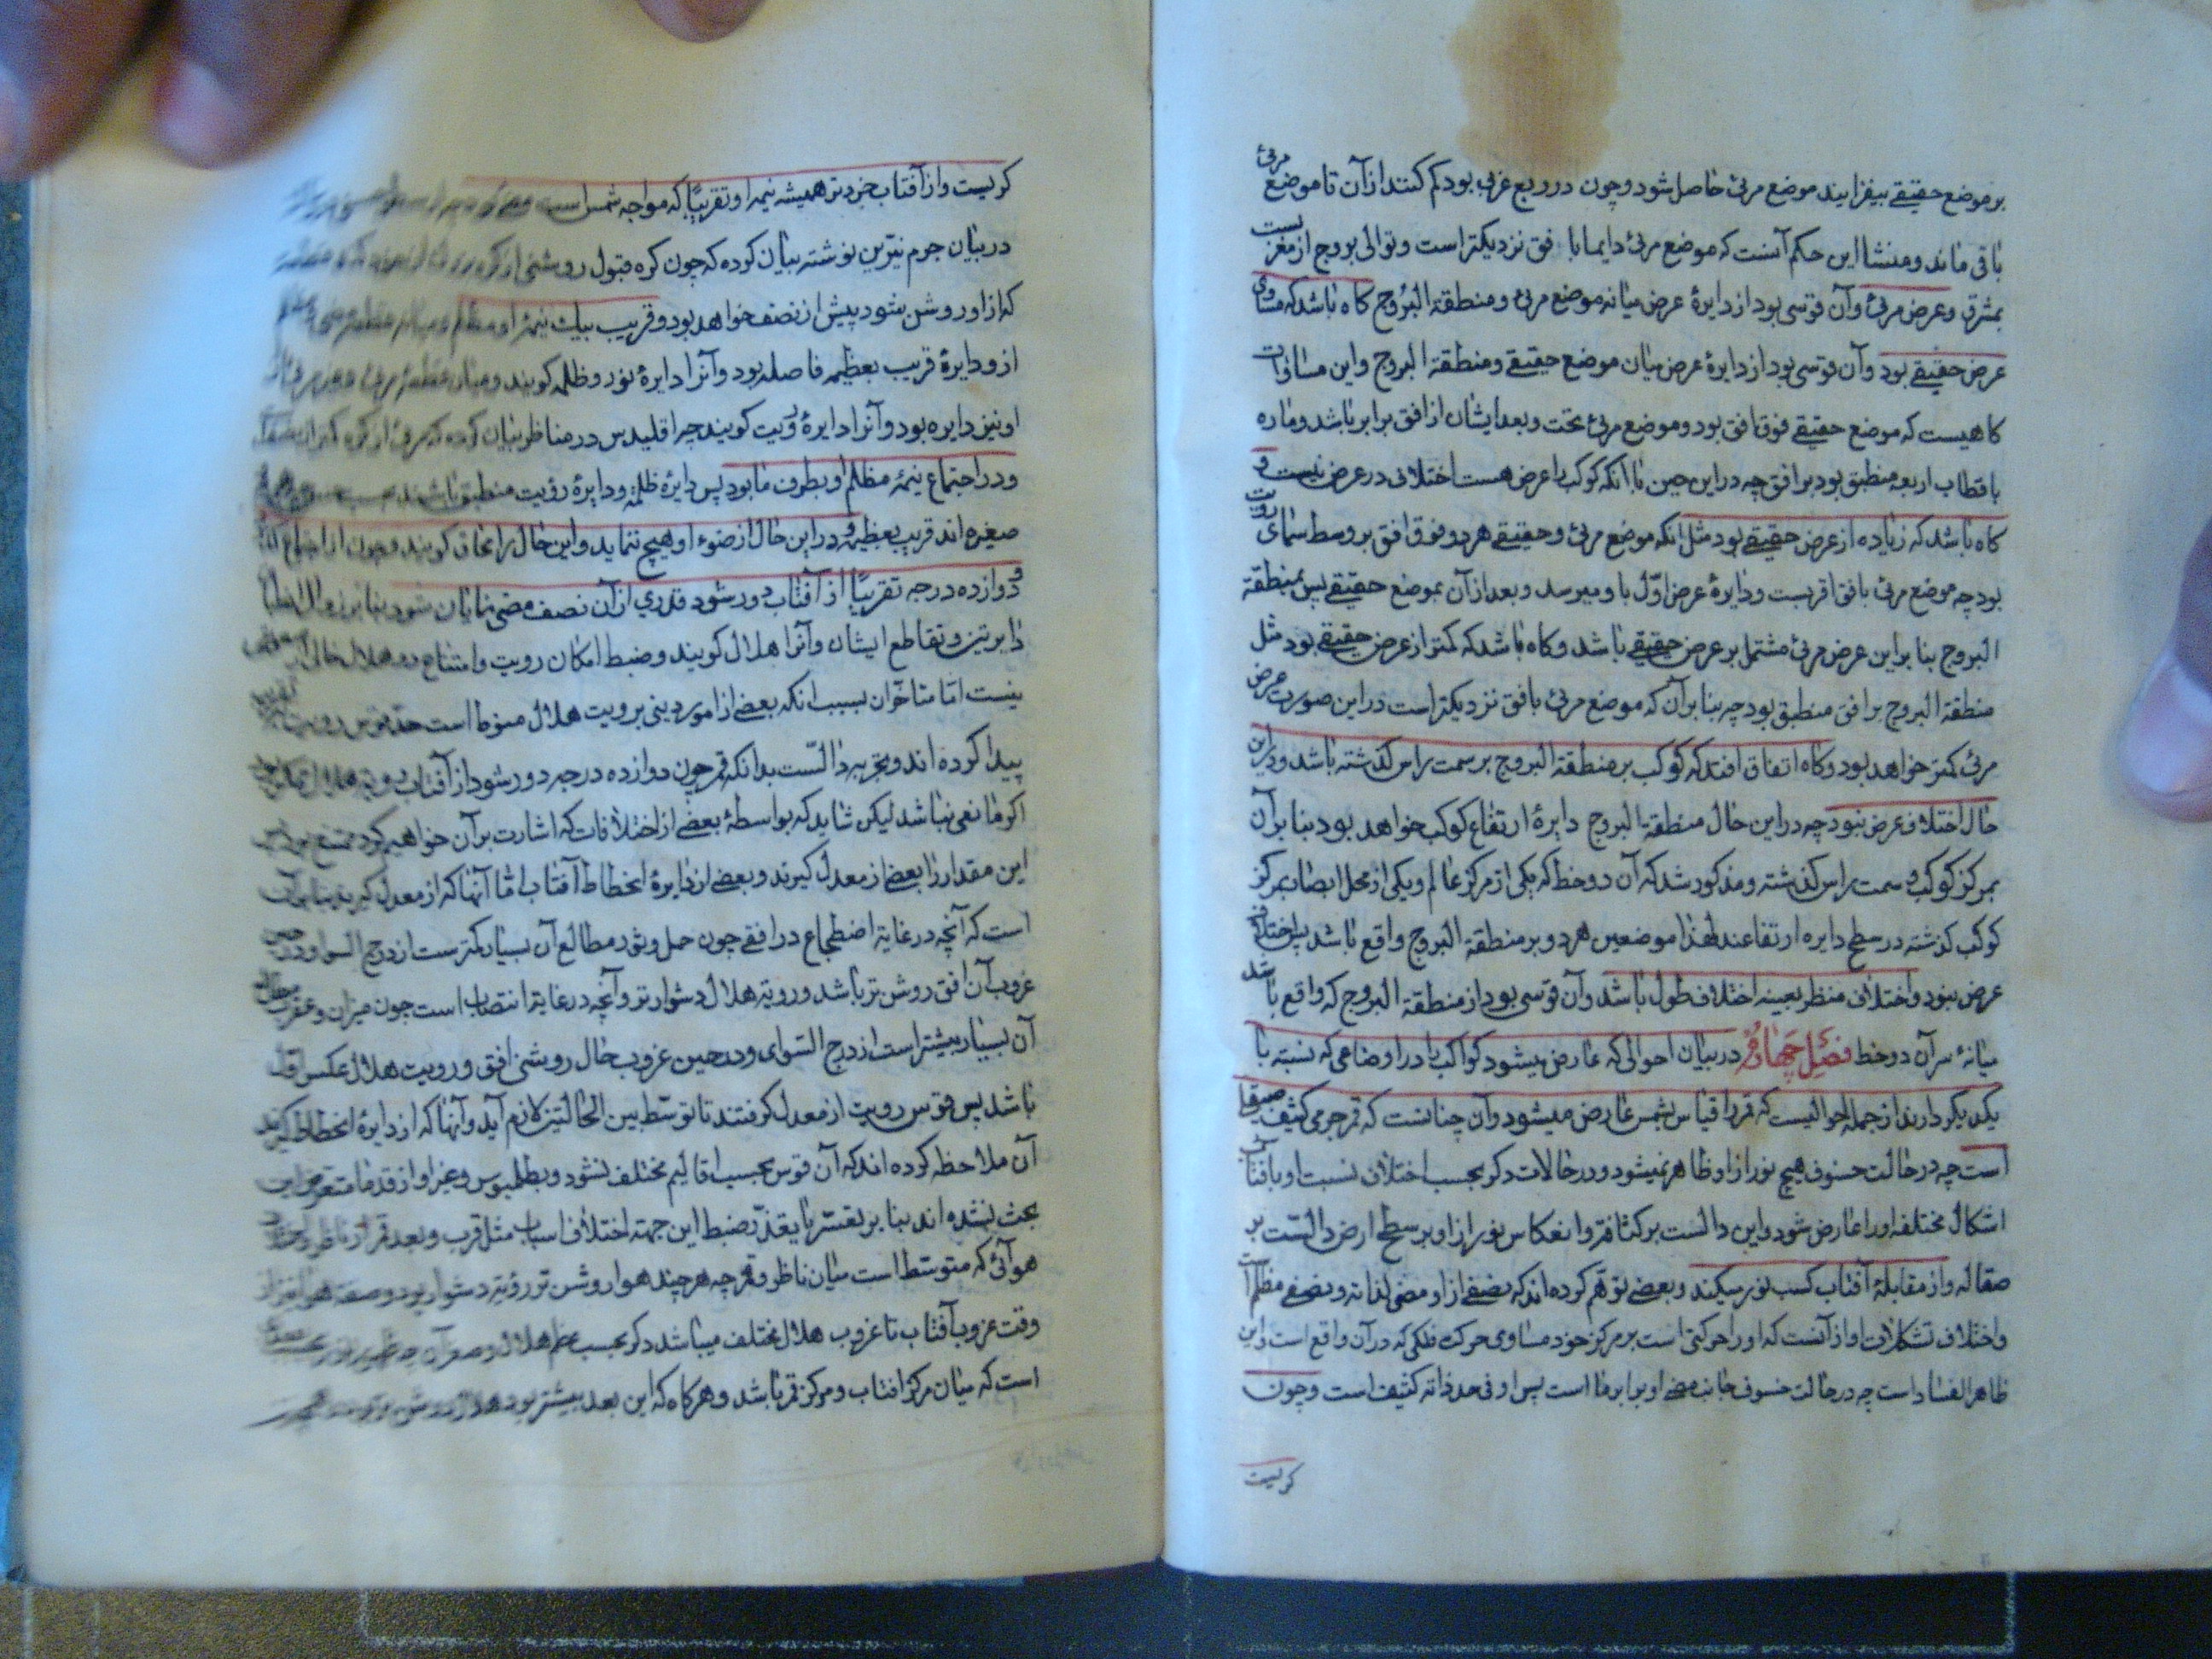 بر موضع حقیقے بیفزایند موضع مرئ حاصل شود و چون در ربع غربی بود کم کنند از آن تا موضع مرئ
باقی ماند و منشا این حکم آنست که موضع مرئ دایما با فق نزدیکتر است و توالی بروج از مغرب
بمشرق و عرض مرئ وآن قوسی بود از دایرۀ عرض میانه موضع مرئ و منطقة البروج کاه باشد که مساوی
عرض حقیقے بود وآن قوسی بود از دایرۀ عرض میان موضع حقیقے و منطقة البروج واین مساوات
کاهیست که موضع حقیقے فوق افق بود و موضع مرئ تحت و بعد ایشان از افق برابر باشد و ماره
باقطاب اربعه منطبق بود بر افق چه در این حین با آنکه کوکب را عرض هست اختلافی در عرض نیست و
کاه باشد که زیاده از عرض حقیقے بود مثل انکه موضع مرئ و حقیقے هر دو فوق افق بر وسط سمای رویت
بود چه موضع مرئ بافق اقربست و دایرۀ عرض اوّل باو میرسد و بعد از آن بموضع حقیقے پس بمنطقة
البروج بنا براین عرض مرئ مشتمل بر عرض حقیقے باشد و کاه باشد که کمتر از عرض حقیقے بود مثل
منطقة البروج بر افق منطبق بود چه بنا بر آن که موضع مرئ بافق نزدیکتر است در این صورت عرض
مرئ کمتر خواهد بود و کاه اتفاق افتد که کوکب بر منطقة البروج بر سمت راس کذشته باشد و در این
حال اختلاف عرض نبود چه در این حال منطقة البروج دایرۀ ارتفاع کوکب خواهد بود بنا بر آن
بمرکز کوکب و سمت راس کذشته و مذکور شد که آن دو خط که یکی از مرکز عالم و یکی از محل ابصار بمرکز
کوکب کذشته در سطح دایره ارتفاعند لهذا موضعین هر دو بر منطقة البروج واقع باشد پس اختلاف
عرض نبود و اختلاف منظر بعینه اختلاف طول باشد وآن قوسی بود از منطقة البروج که واقع باشد
میانۀ سر آن دو خط فصل چهارم در بیان احوالی که عارض میشود کواکب را در اوضاعی که نسبة با
یکدیکر دارند از جمله احوالیست که قمر را قیاس بشمس عارض میشود وآن چنانست که قمر جرمی کثیف صیقل
است چه در حالت خسوف هیچ نور ازاو ظاهر نمیشود و در حالات دکر بحسب اختلاف نسبت او بافتاب
اشکال مختلفه اورا عارض شود واین دالست بر کثافة و انعکاس نور ازاو بر سطح ارض دالست بر
صقاله واز مقابلۀ آفتاب کسب نور میکند و بعضے توهّم کرده اند که نصفے ازاو مضی لذاته و نصفے مظلم است
واختلاف تشکلات او از آنست که اورا حرکتی است بر مرکز خود مساوی حرکت فلکی که در آن واقع است واین
ظاهر الفساد است چه در حالت خسوف جانب مضی او برابر ما است پس او فی حد ذاته کثیف است و چون
کریست
کریست واز آفتاب خردتر همیشه نیمه او تقریبًا که مواجه شمس است
در بیان جرم نیّرین نوشته بیان کرده که چون کره قبول روشنی از کره
که ازاو روشن شود پیش از نصف خواهد بود و قریب بیک نیمۀ او
ازو دایرۀ قریب بعظیمه فاصله بود وآنرا دایرۀ نور و ظلمه کویند
او نیز دایره بود وآنرا دایرۀ رویت کویند چه اقلیدس در مناظر بیان کرده که
ودر اجتماع نیمۀ مظلم او بطرف ما بود پس دایرۀ ظلمة و دایرۀ رؤیت منطبق باشند
صغیره اند قریب بعظیمه و در این حال از ضوء او هیچ ننماید واین حال را محاق کویند و چون از اجتماع
دوازده درجه تقریبًا از آفتاب دور شود قدری از آن نصف مضی نمایان شود بنا بر
دایرتین و تقاطع ایشان وآنرا هلال کویند و ضبط امکان رویت وامتناع
نیست امّا متاخران بسبب انکه بعضے از امور دینی برویت هلال منوط است
پیدا کرده اند و تجربه دالست بدانکه قمر چون دوازده درجه دور شود از آفتاب
اکر مانعی نباشد لیکن شاید که بواسطۀ بعضے از اختلافات که اشارت بر آن خواهیم کرد ممتنع بود
این مقدار را بعضے از معدل کیرند و بعضے از دایرۀ انحطاط آفتاب امّا آنها که از معدل کیرند بنا بر آن
است که آنچه در غایة اضطجاع در افقے چون حمل و ثور مطالع آن بسیار کمترست از درج السوا و در
غروب آن افق روشن تر باشد و رویة هلال دشوارتر وآنچه در غایة انتصاب است چون میزان و عقرب
آن بسیار بیشتر است از درج السوای و در حین غروب حال روشنی افق و رویت هلال عکس اوّل
باشد پس قوس رویت از معدل کرفتند تا توسط بین الحالتین لازم آید وآنها که از دایرۀ انحطاط کیرند
آن ملاحظه کرده اند که آن قوس بحسب اقالیم مختلف نشود و بطلمیوس و غیر او از قدما متعرض این
بحث نشده اند بنا بر تعسّر یا تعذّر ضبط این جهة اختلاف اسباب مثل قرب و بعد قمر از ناظر
هوائی که متوسط است میان ناظر و قمر چه هر چند هوا روشن تر رؤیة دشوار بود
وقت غروب آفتاب تا غروب هلال مختلف میباشد دکر بحسب عظم هلال و صغر آن
است که میان مرکز افتاب و مرکز قمر باشد و هرکاه که این بعد بیشتر بود